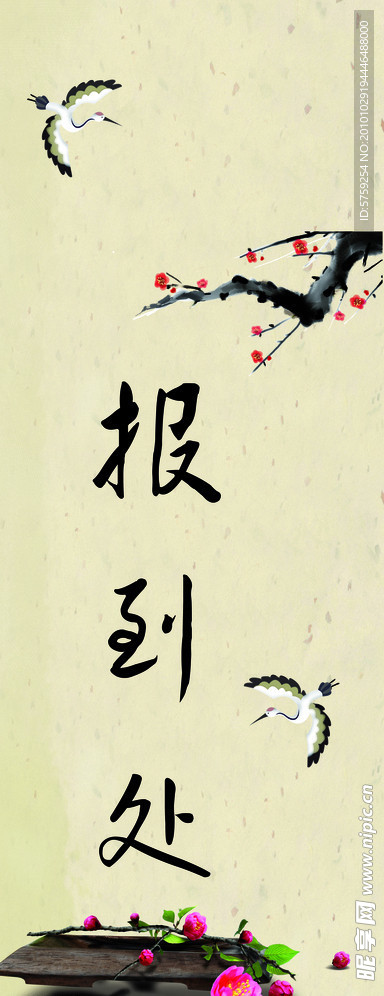 ID:5759254 NO:20101029194446488000
报
到
处
昵享网 www.nipic.cn